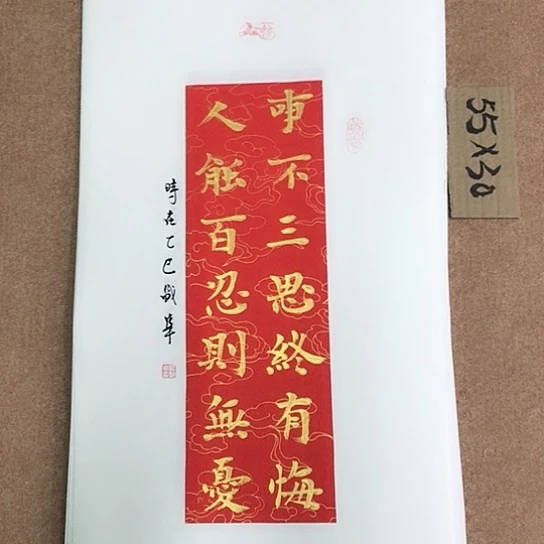 事不三思終有悔
人能百忍則無憂
時在乙巳
55X30